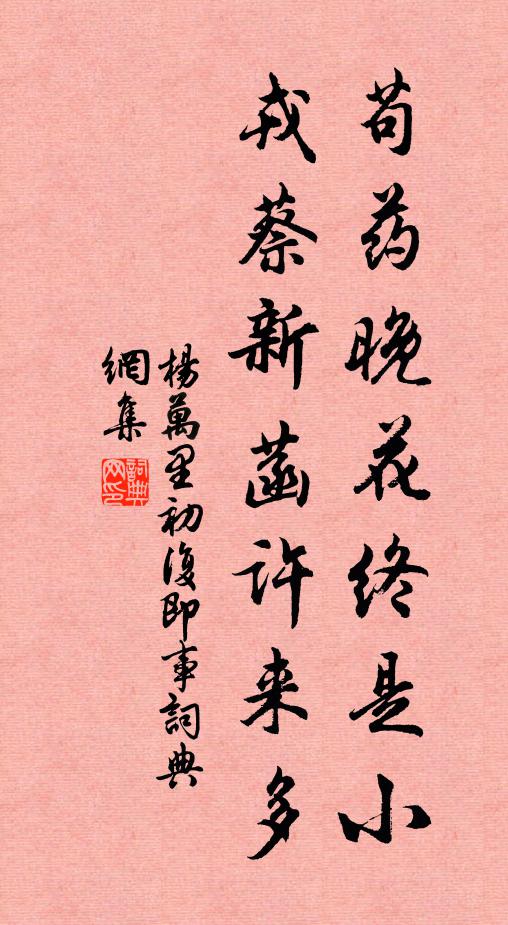 苟药晚花终是小
戎蔡新菡许来多
楊萬里初復即事詞典
網集
詞典网印